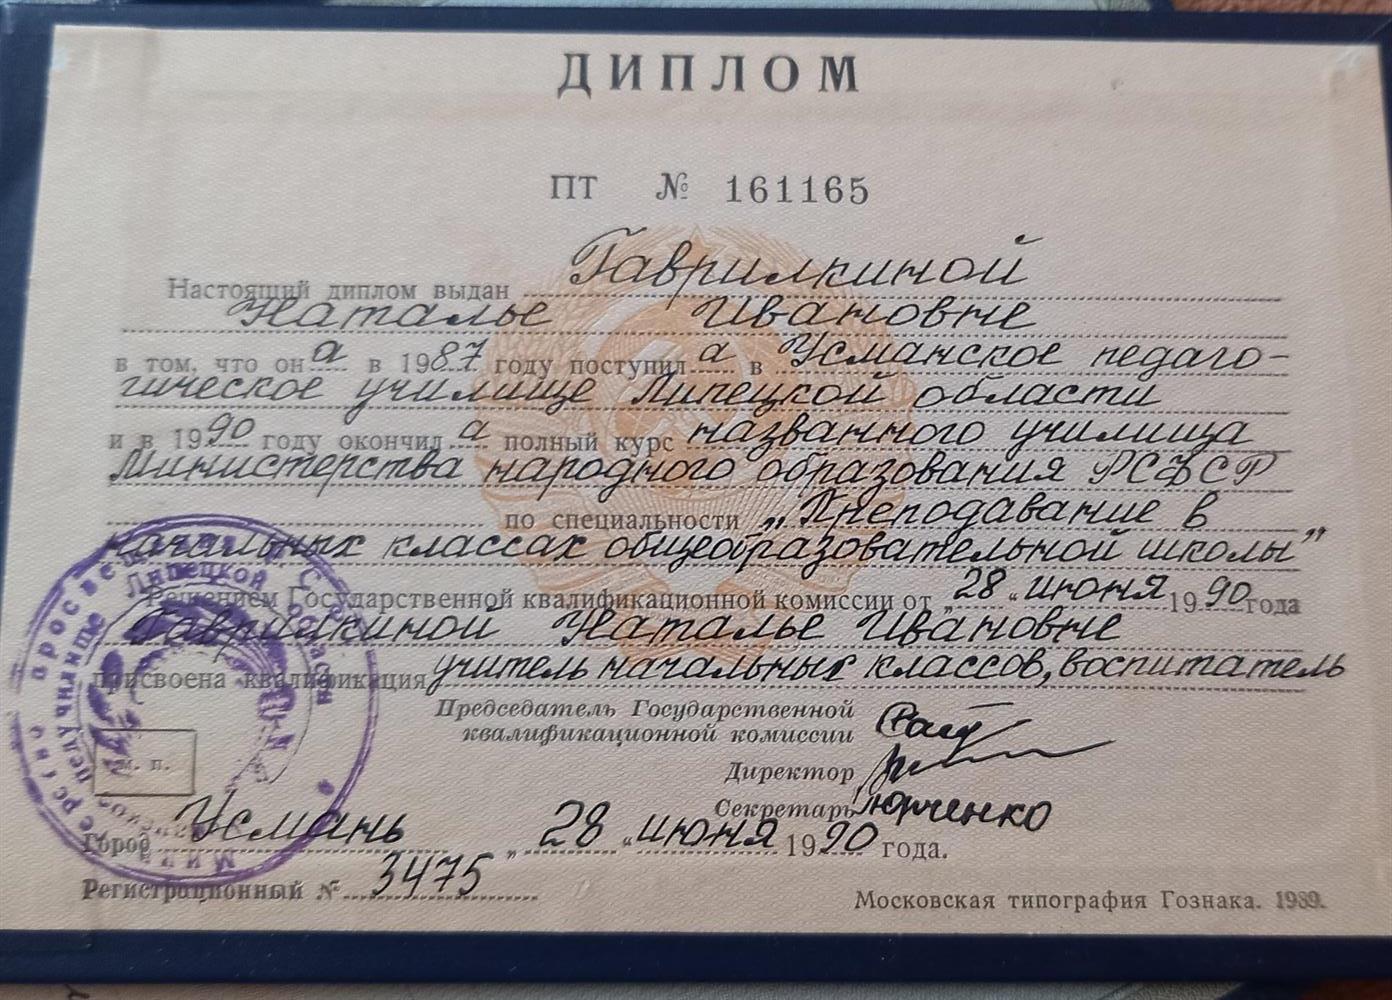 ДИПЛОМ
ПТ № 161165
Настоящий диплом выдан Гаврилкиной
Наталье Ивановне
в том, что он а в 1987 году поступил а в Усманское педаго-
гическое училище Липецкой области
и в 1990 году окончил а полный курс названного училища
Министерства народного образования РСФСР
по специальности „Преподавание в
начальных классах общеобразовательной школы"
Решением Государственной квалификационной комиссии от „28" июня 1990 года
Гаврилкиной Наталье Ивановне
присвоена квалификация учитель начальных классов, воспитатель
Председатель Государственной
квалификационной комиссии
Директор
Секретарь Юрченко
м. п.
Город Усмань „28" июня 1990 года.
Регистрационный № 3475
Московская типография Гознака. 1989.